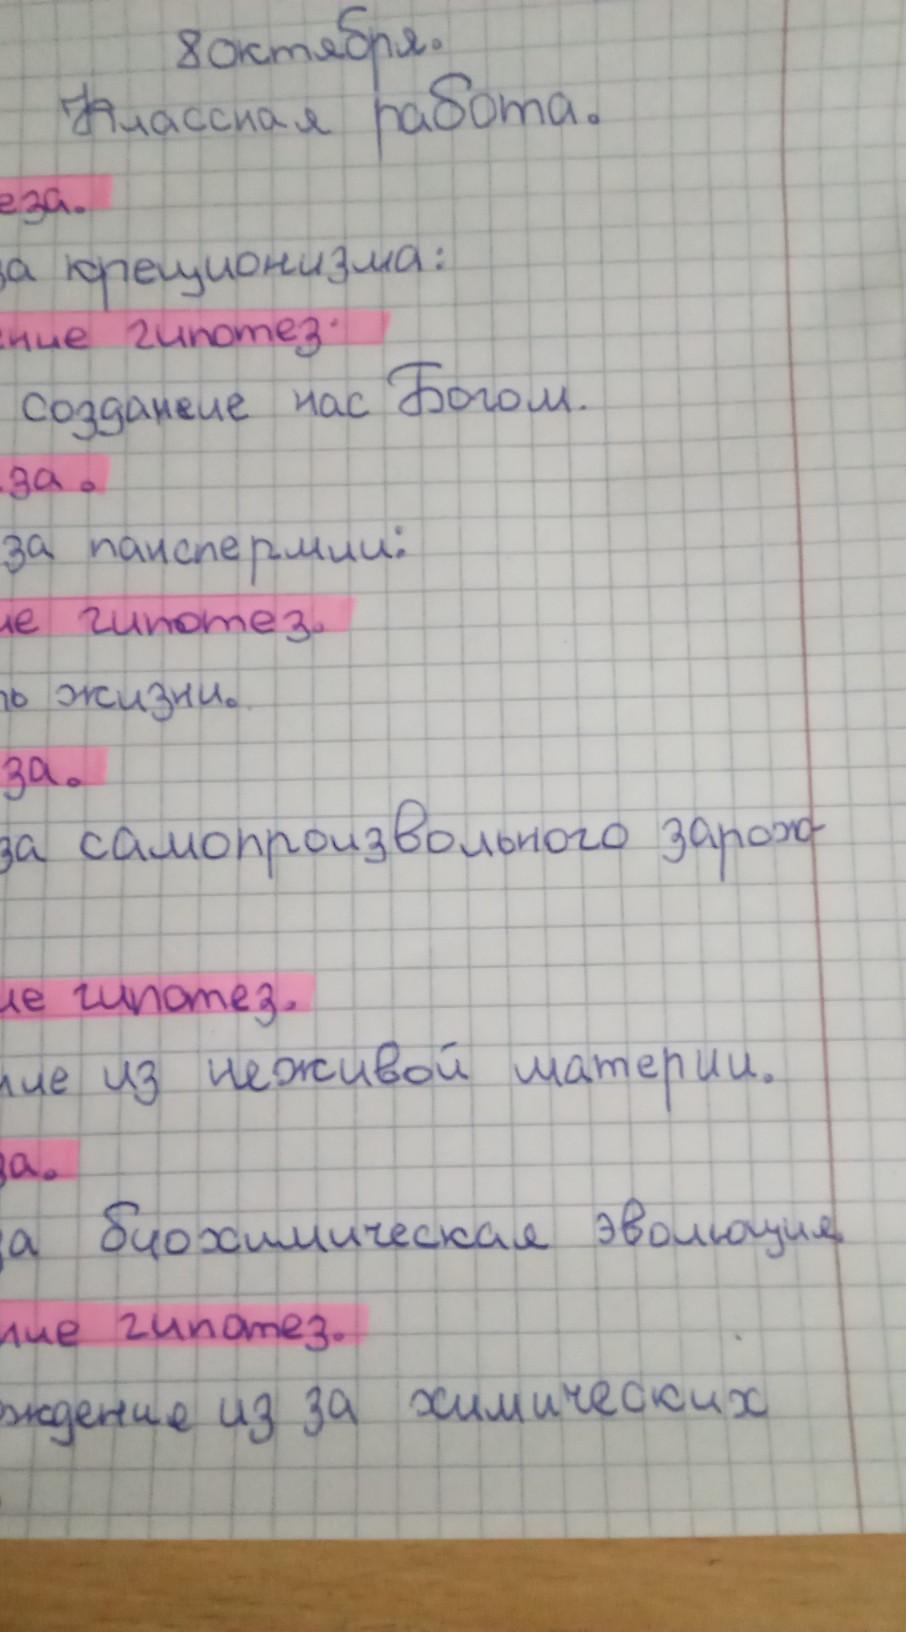 8 октября.
Классная работа.
еза.
за креционизма:
ение гипотез.
создание нас Богом.
за.
за панспермии:
ие гипотез.
ть жизни.
за.
за самопроизвольного зарож-
ие гипотез.
ние из неживой материи.
за.
за биохимическая эволюция.
ние гипотез.
ождение из за химических